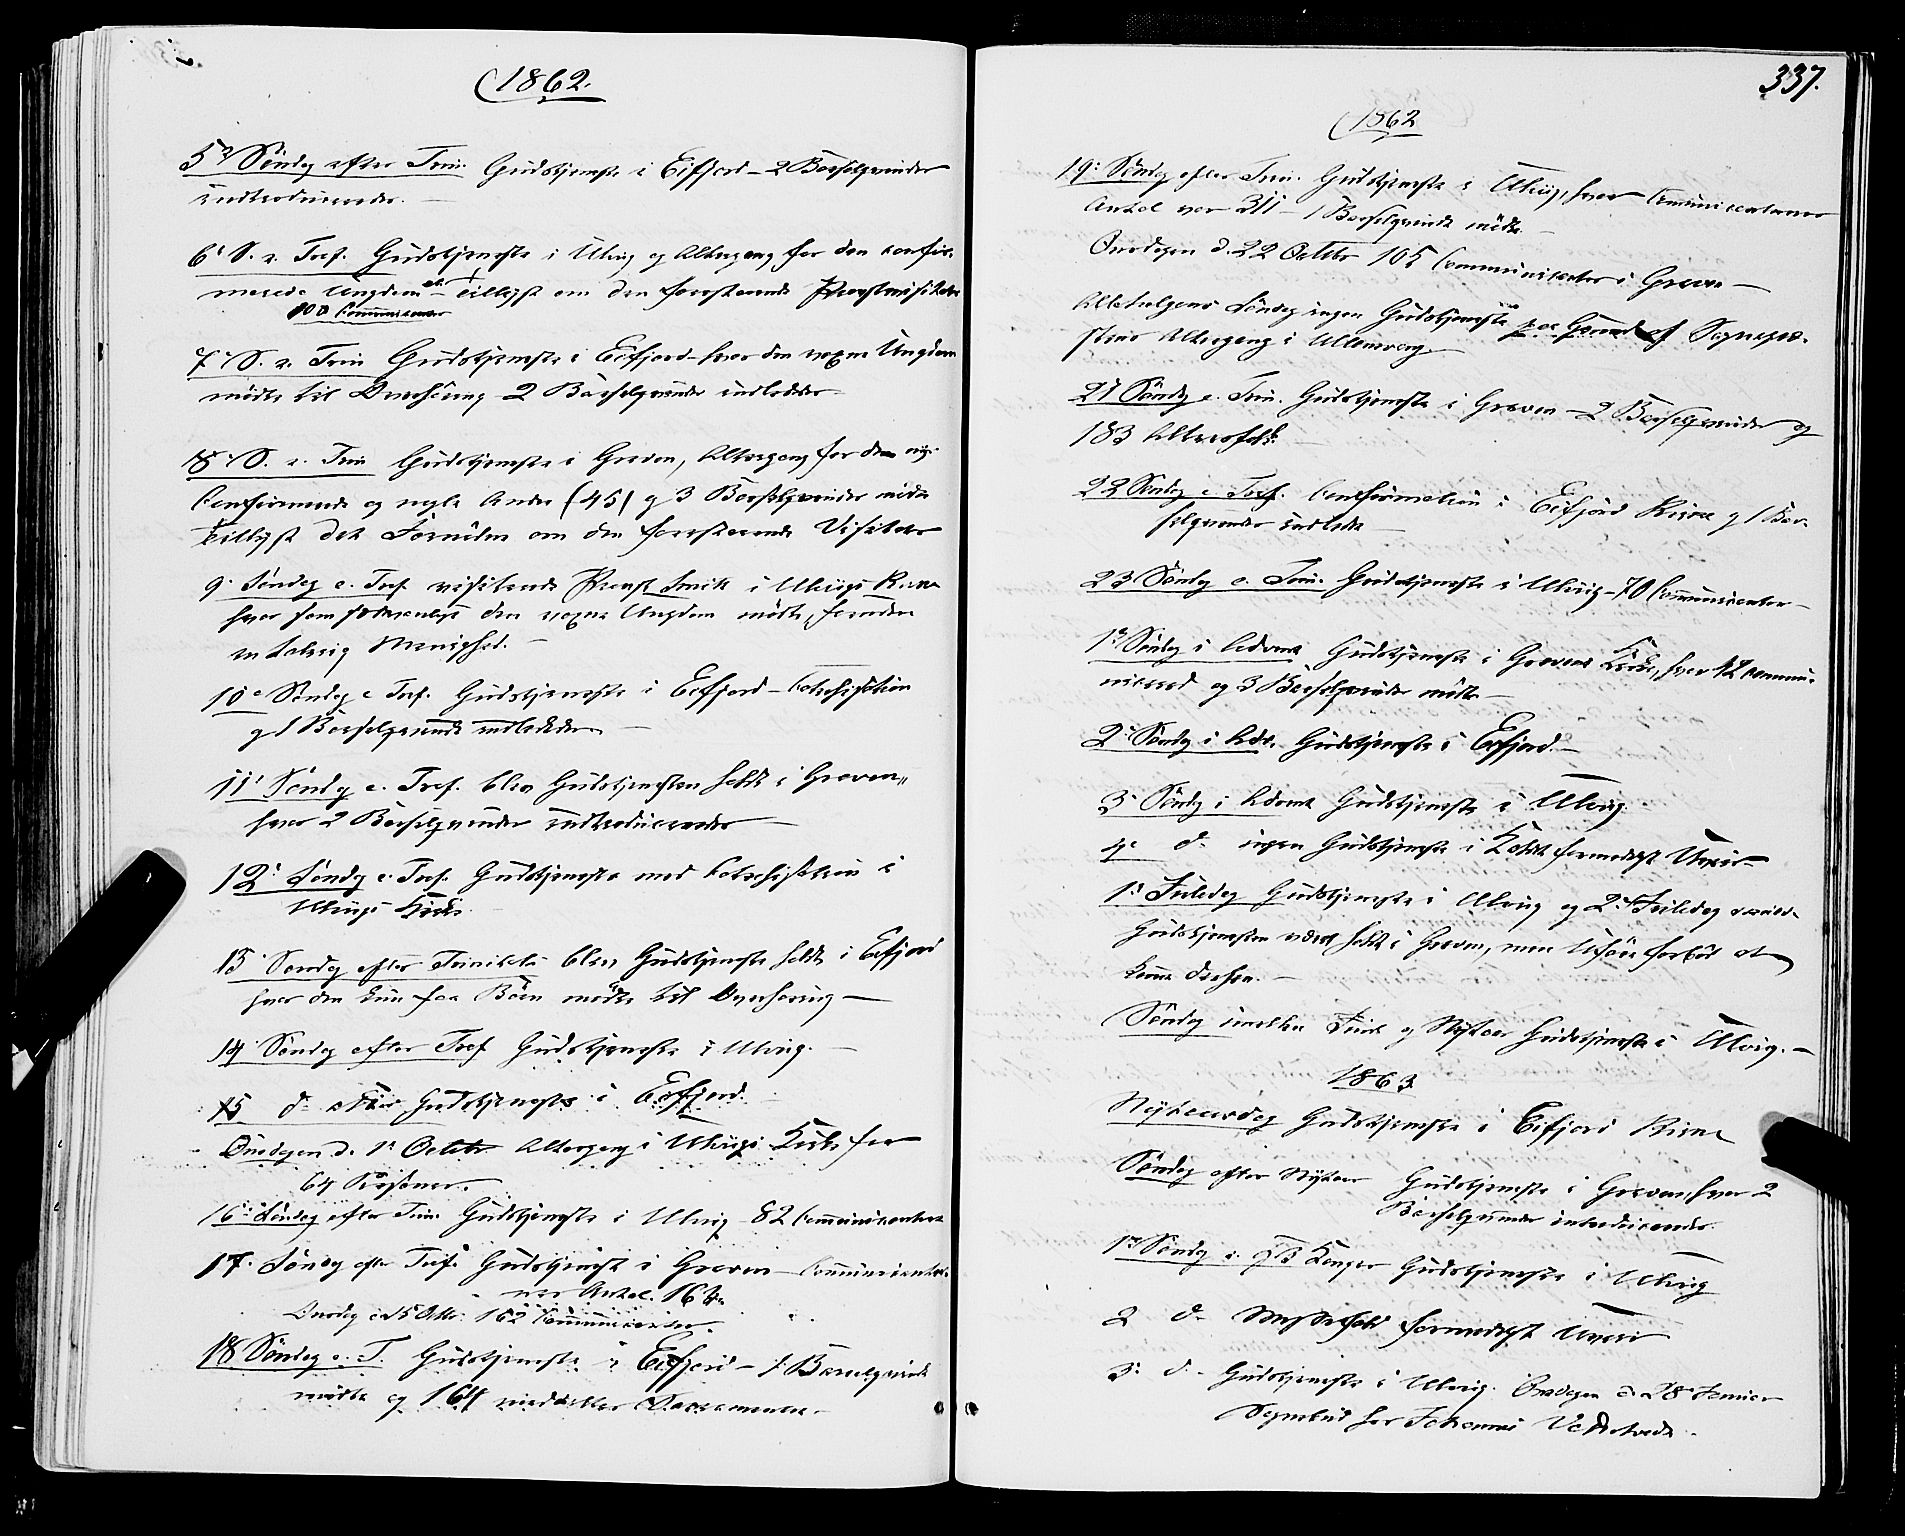 (1862.
5te Søndag efter Trin. Gudstjeneste i Eifjord – 2 Barselqvinder
indtroduceredes. –
6te S. e. Tref. Gudstjeneste i Ulvig og Altergang for den confir-
merede Ungdom – tillyst om den forestaaende Provstevisitats
100 Communicanter
7de S. e. Trin Gudstjeneste i Eifjord – hvor den voxne Ungdom
mødte til Overhøring – 2 Barselqvinder indlededes –
8de S. e. Trin Gudstjeneste i Graven, Altergang for de ny-
Confirmerede og nogle Andre (45) og 3 Barselqvinder mødte
tillyst det Fornødne om den forestaaende Visitats
9de Søndag e. Tref. visiterede Provst Smitt i Ulvigs Kirke
hvor som sædvanligt den voxne Ungdom mødte, foruden
en talrig Menighed. –
10de Søndag e Tref. Gudstjeneste i Eifjord – Catechisation
og 1 Barselqvinde indlededes –
11te Søndag e. Tref. blev Gudstjenesten holdt i Graven,
hvor 2 Barselqvinder indtroduceredes –
12te Søndag e. Tref. Gudstjeneste med Catechisation i
Ulvigs Kirke.
13 Søndag efter Trinitatis blev Gudstjeneste holdt i Eifjord
hvor der kun faa Børn mødte til Overhøring –
14 Søndag efter Tref Gudstjeneste i Ulvig. –
15 do Gudstjeneste i Eifjord. –
Onsdagen d. 1ste Octobr. Altergang i Ulvigs Kirke for
64 Personer.
16de Søndag efter Trin. Gudstjeneste i Ulvig – 82 Communicanter
17. Søndag efter Tref. Gudstjeneste i Graven – Communicanternes
Antal. 164.
Onsdag d. 15 Octbr. 162 Communicanter.
18 Søndag e. T. Gudstjeneste i Eifjord – 1 Barselqvinde
mødte og 164 nød Sacramentet –
337.
(1862
19de Søndag efter Trin. Gudstjeneste i Ulvig, hvor Communicanternes
Antal var 311 – 1 Barselqvinde mødte. –
Onsdagen d. 22 Octobr 105 Communicanter i Graven –
Allehelgens Søndag ingen Gudstjeneste paa Grund af Sognepræ-
stens Altergang i Ullensvang
21 Søndag e. Trin. Gudstjeneste i Graven – 2 Barselqvinder og
183 Altersfolk. –
22 Søndag e Tref. Confirmation i Eifjord Kirke og 1 Bar-
selqvinde indledet –
23 Søndag e. Trin. Gudstjeneste i Ulvig – 70 Communicanter –
1ste Søndag i Advent Gudstjeneste i Gravens Kirke, hvor 12 commu-
nicered og 3 Barselqvinder mødte –
2den Søndag i Adv. Gudstjeneste i Eifjord. –
3die Søndag i Advent Gudstjeneste i Ulvig.
4de do ingen Gudstjeneste i formedelst Uveir –
1ste Juledag Gudstjeneste i Ulvig og 2den Juledag skulde
Gudstjenesten været holdt i Graven, men Uføre forbød at
komme derhen. –
Søndag imellem Juul og Nytaar Gudstjeneste i Ulvig. –
1863
Nytaarsdag Gudstjeneste i Eifjord Kirke
Søndag efter Nytaar Gudstjeneste i Graven, hvor 2
Barselqvinder introduceredes.
1ste Søndag e. H. 3 Konger Gudstjeneste i Ulvig
2 do Messefald formedelst Uveir
3die do – Gudstjeneste i Ulvig. Onsdagen d. 28 Januar
Sognebud hos Johannes